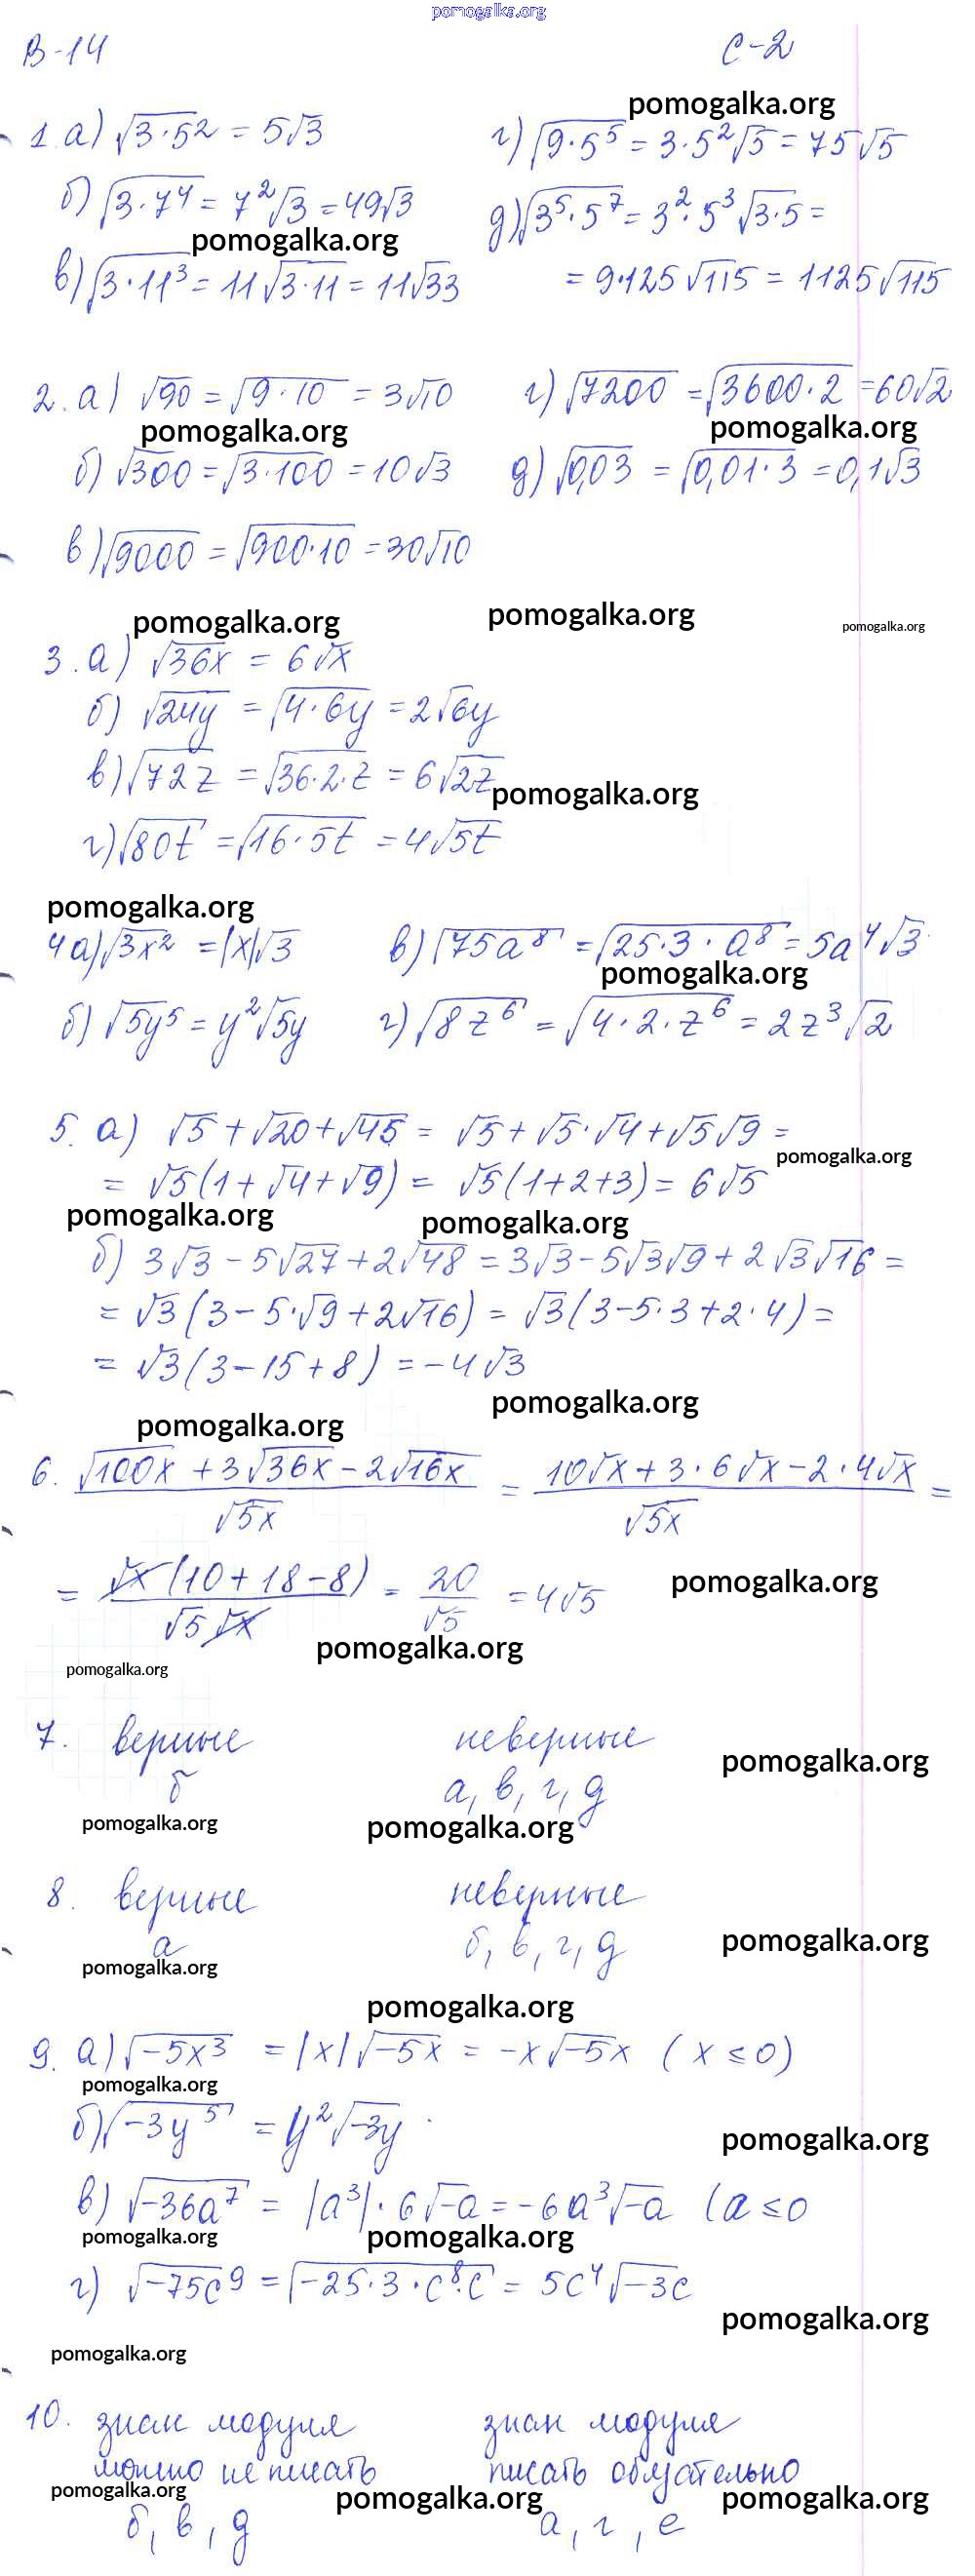 pomogalka.org
В-14 С-2
pomogalka.org
1. а) √3·5² = 5√3 г) √9·5⁵ = 3·5²√5 = 75√5
б) √3·7⁴ = 7²√3 = 49√3 д) √3⁵·5⁷ = 3²·5³√3·5 =
pomogalka.org
в) √3·11³ = 11√3·11 = 11√33 = 9·125√115 = 1125√115
2. а) √90 = √9·10 = 3√10 г) √7200 = √3600·2 = 60√2
pomogalka.org pomogalka.org
б) √300 = √3·100 = 10√3 д) √0,03 = √0,01·3 = 0,1√3
в) √9000 = √900·10 = 30√10
pomogalka.org pomogalka.org pomogalka.org
3. а) √36x = 6√x
б) √24y = √4·6y = 2√6y
в) √72z = √36·2·z = 6√2z
pomogalka.org
г) √80t = √16·5t = 4√5t
pomogalka.org
4 а) √3x² = |x|√3 в) √75a⁸ = √25·3·a⁸ = 5a⁴√3
pomogalka.org
б) √5y⁵ = y²√5y г) √8z⁶ = √4·2·z⁶ = 2z³√2
5. а) √5 + √20 + √45 = √5 + √5·√4 + √5√9 =
pomogalka.org
= √5(1 + √4 + √9) = √5(1+2+3) = 6√5
pomogalka.org pomogalka.org
б) 3√3 - 5√27 + 2√48 = 3√3 - 5√3√9 + 2√3√16 =
= √3(3 - 5·√9 + 2√16) = √3(3-5·3+2·4) =
= √3(3-15+8) = -4√3
pomogalka.org pomogalka.org
6. √100x + 3√36x - 2√16x / √5x = 10√x + 3·6√x - 2·4√x / √5x =
= √x(10+18-8) / √5√x = 20 / √5 = 4√5
pomogalka.org
pomogalka.org
pomogalka.org
7. верные неверные
pomogalka.org
б а, в, г, д
pomogalka.org pomogalka.org
8. верные неверные
а б, в, г, д
pomogalka.org
pomogalka.org
pomogalka.org
9. а) √-5x³ = |x|√-5x = -x√-5x (x ≤ 0)
pomogalka.org
б) √-3y⁵ = y²√-3y
pomogalka.org
в) √-36a⁷ = |a³|·6√-a = -6a³√-a (a ≤ 0
pomogalka.org pomogalka.org
г) √-75c⁹ = √-25·3·c⁸·c = 5c⁴√-3c
pomogalka.org
pomogalka.org
10. знак модуля знак модуля
можно не писать писать обязательно
pomogalka.org pomogalka.org pomogalka.org
б, в, д а, г, е